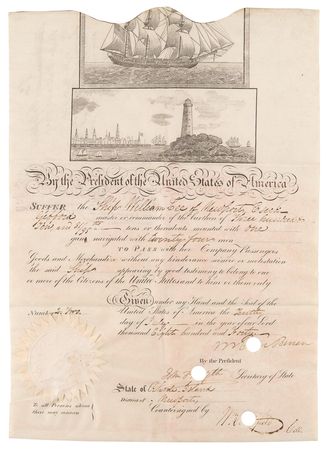 By the President of the United States of America
SUFFER the Ship William Lee of Newport,
master or commander of the burthen of Three hundred
tons or thereabouts mounted with one
guns navigated with twenty four men
TO PASS with her Company Passengers
Goods and Merchandize without any hinderance seisure or molestation
the said Ship appearing by good testimony to belong to one
or more of the Citizens of the United States and to him or them only
Given under my Hand and the Seal of the
United States of America the
day of in the year of our Lord
thousand Eight hundred and Forty
Number Two
By the President
Secretary of State
State of Rhode Island
District of Newport
Countersigned by
To all Persons whom
these may concern